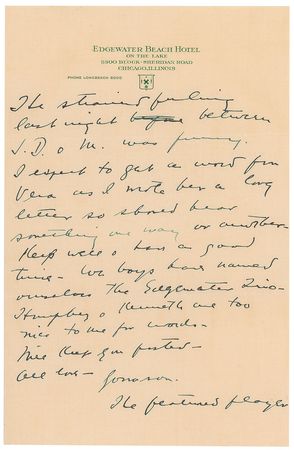 EDGEWATER BEACH HOTEL
ON THE LAKE
5300 BLOCK - SHERIDAN ROAD
CHICAGO, ILLINOIS
PHONE LONGBEACH 6000
The strained feeling
last night between
J. D. & M. was funny.
I expect to get a word from
Vera as I wrote her a long
letter so should hear
something one way or another -
Keep well & have a good
time - We boys have named
ourselves The Edgewater Trio -
Humphry & Kenneth are too
nice to me for words -
Will keep you posted -
All love -
The featured player